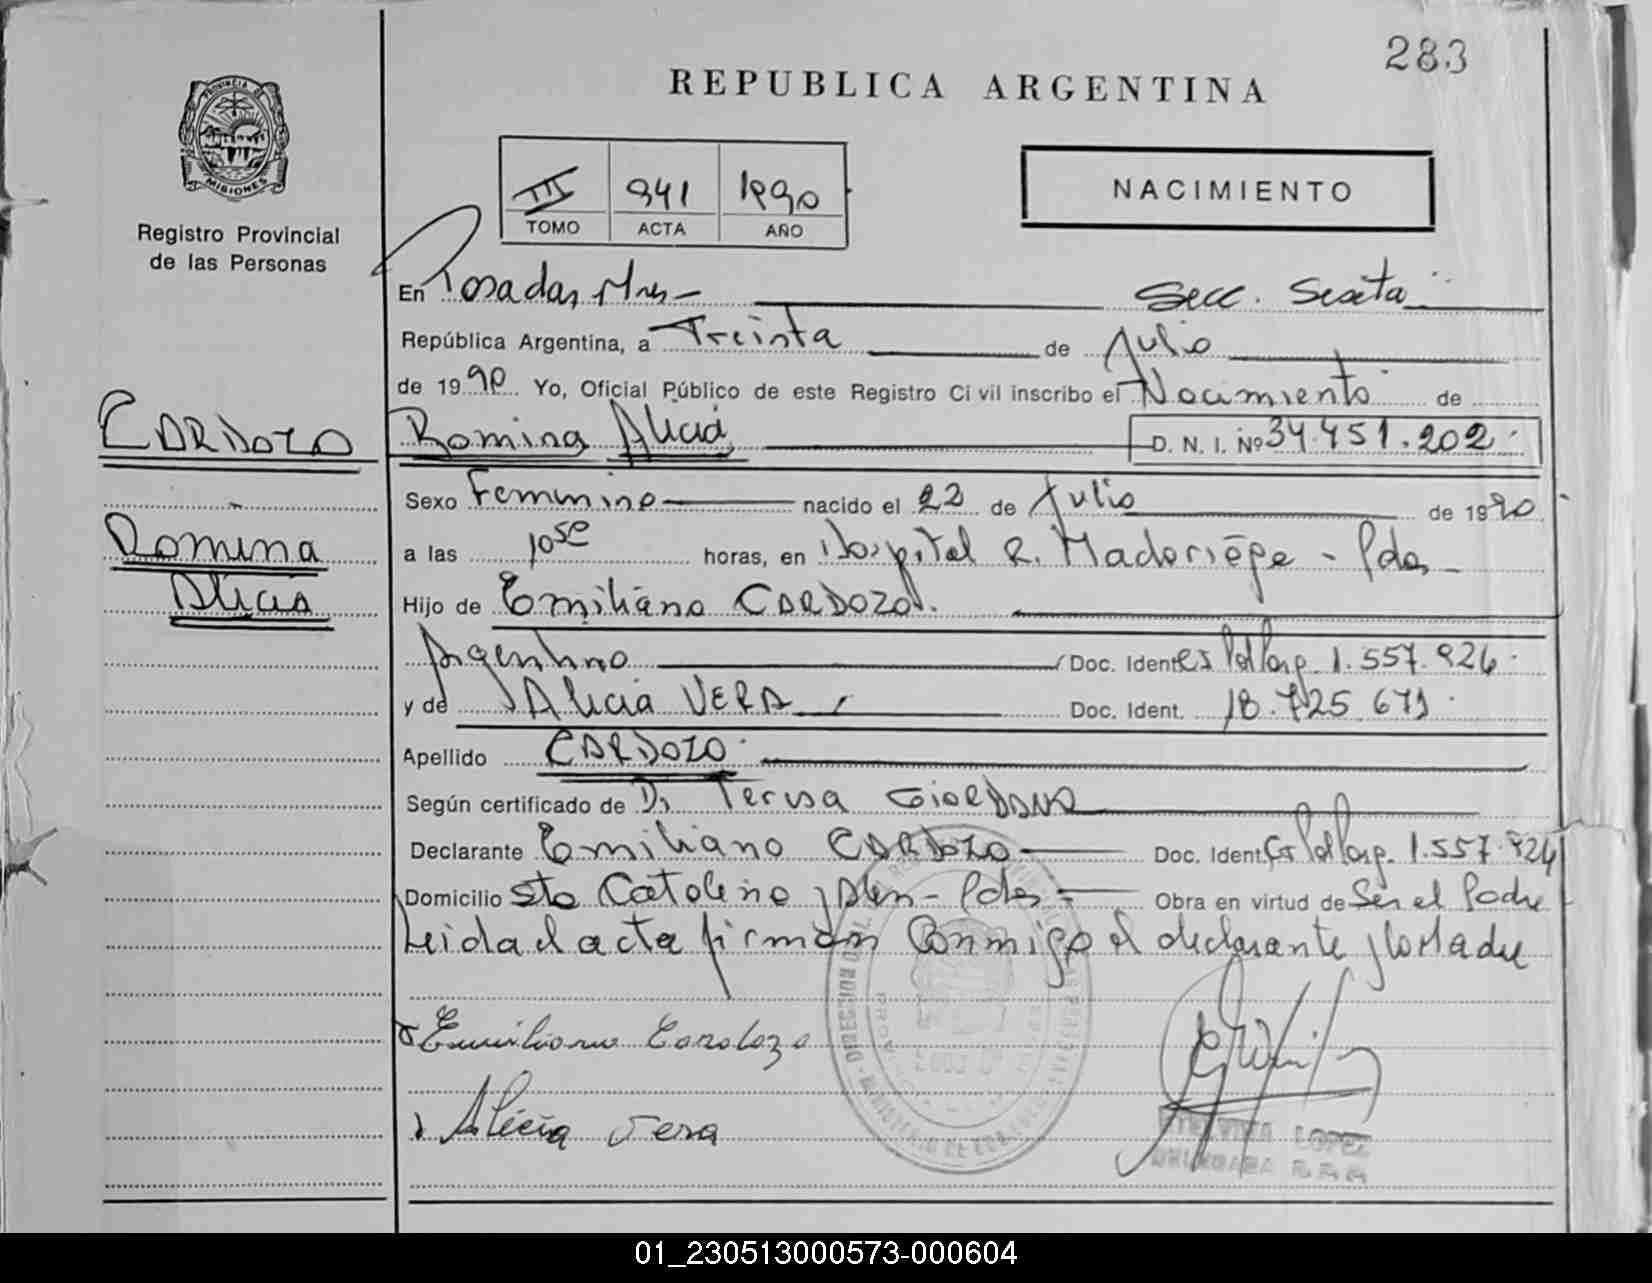 283
REPUBLICA ARGENTINA
PROVINCIA DE MISIONES
Registro Provincial
de las Personas
III 941 1990
TOMO ACTA AÑO
NACIMIENTO
En Posadas, Mnes- Secc. Sexta
República Argentina, a Treinta de Julio
de 1990 Yo, Oficial Público de este Registro Civil inscribo el Nacimiento de
CARDOZO
Romina Alicia D. N. I. Nº 34.451.202
Sexo Femenino nacido el 22 de Julio de 1990
Romina
a las 10 horas, en Hospital R. Madariaga - Pdas
Alicia
Hijo de Emiliano CARDOZO.
Argentino Doc. Ident. 1.557.924
y de Alicia VERA Doc. Ident. 18.725.679
Apellido CARDOZO
Según certificado de Teresa GIORDANO
Declarante Emiliano CARDOZO Doc. Ident. 1.557.924
Domicilio Sta Catalina y Alen - Pdas - Obra en virtud de Ser el Padre
Leida el acta firman Conmigo el declarante y la Madre
Emiliano Cardozo
Alicia Vera
LOPEZ
01_230513000573-000604